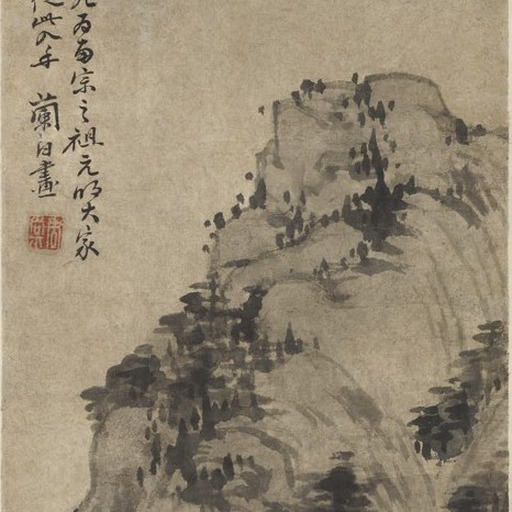 為南宗之祖元明大家
從此入手 蘭 畫